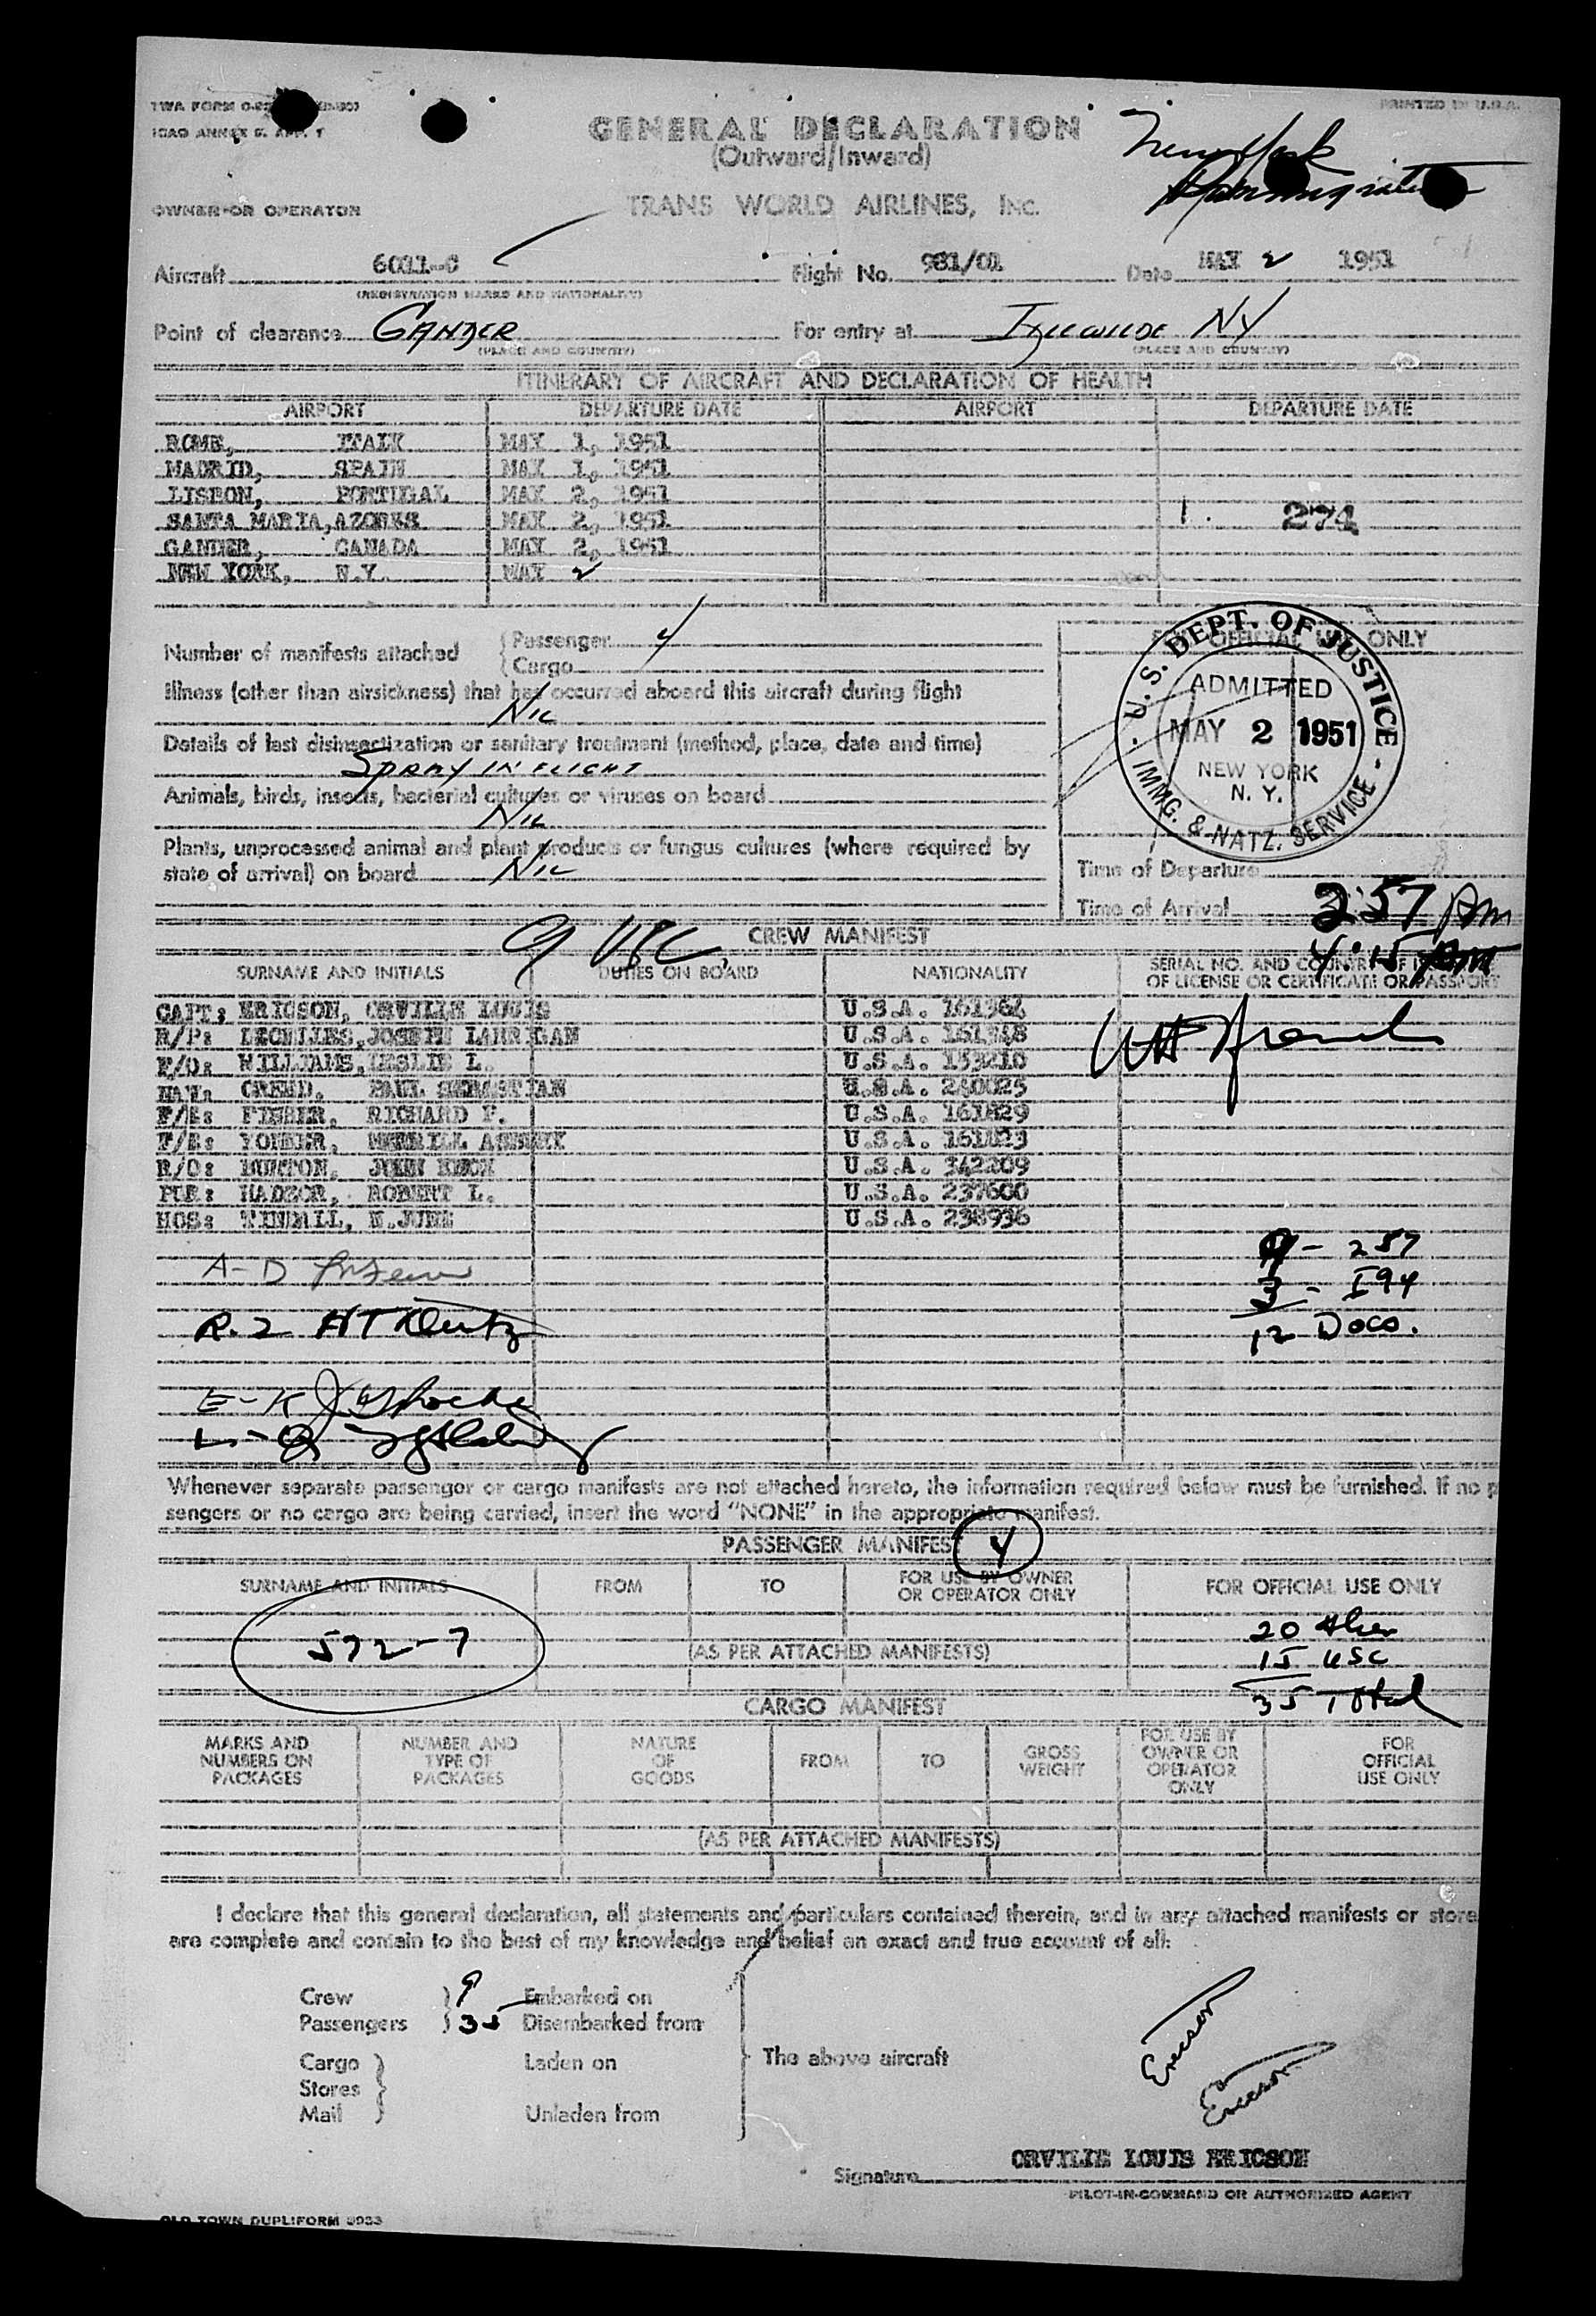 TWA FORM
ICAO ANNEX 9. APP. 1
PRINTED IN U.S.A.
GENERAL DECLARATION
(Outward/Inward)
New York
OWNER OR OPERATOR
TRANS WORLD AIRLINES, INC.
Aircraft 6011-C Flight No. 981/01 Date MAY 2 1951
(REGISTRATION MARKS AND NATIONALITY)
Point of clearance GANDER For entry at IDLEWILDE NY
(PLACE AND COUNTRY) (PLACE AND COUNTRY)
ITINERARY OF AIRCRAFT AND DECLARATION OF HEALTH
AIRPORT DEPARTURE DATE AIRPORT DEPARTURE DATE
ROME, ITALY MAY 1, 1951
MADRID, SPAIN MAY 1, 1951
LISBON, PORTUGAL MAY 2, 1951
SANTA MARIA, AZORES MAY 2, 1951 1. 274
GANDER, CANADA MAY 2, 1951
NEW YORK, N.Y. MAY 2
Number of manifests attached { Passenger 4
{ Cargo
FOR OFFICIAL USE ONLY
U.S. DEPT. OF JUSTICE - IMMG. & NATZ. SERVICE -
ADMITTED
MAY 2 1951
NEW YORK
N. Y.
Illness (other than airsickness) that has occurred aboard this aircraft during flight
NIL
Details of last disinsectization or sanitary treatment (method, place, date and time)
SPRAY IN FLIGHT
Animals, birds, insects, bacterial cultures or viruses on board
NIL
Plants, unprocessed animal and plant products or fungus cultures (where required by
state of arrival) on board NIL
Time of Departure
Time of Arrival 2:57 PM
4:15 PM
9 USC
CREW MANIFEST
SURNAME AND INITIALS DUTIES ON BOARD NATIONALITY SERIAL NO. AND COUNTRY OF
OF LICENSE OR CERTIFICATE OR PASSPORT
CAPT: ERICSON, ORVILLE LOUIS U.S.A. 161364
R/P: JOSEPH U.S.A. 161348
F/O: WILLIAMS, LESLIE L. U.S.A. 153210
NAV: CREED, PAUL SEBASTIAN U.S.A. 240025
F/E: RICHARD F. U.S.A. 161829
F/E: MERRILL U.S.A. 161823
R/O: BURTON, JOHN U.S.A. 342209
PUR: HADSOR, ROBERT L. U.S.A. 237600
HOS: TINDALL, N. JUNE U.S.A. 238936
A-D
9 - 257
3 - I94
R.2 12 Docs.
E-K
L-Q
Whenever separate passenger or cargo manifests are not attached hereto, the information required below must be furnished. If no p
sengers or no cargo are being carried, insert the word "NONE" in the appropriate manifest.
PASSENGER MANIFEST 4
SURNAME AND INITIALS FROM TO FOR USE BY OWNER
OR OPERATOR ONLY FOR OFFICIAL USE ONLY
572-7
20 Alien
(AS PER ATTACHED MANIFESTS) 15 USC
35 Total
CARGO MANIFEST
MARKS AND
NUMBERS ON
PACKAGES
NUMBER AND
TYPE OF
PACKAGES
NATURE
OF
GOODS
FROM
TO
GROSS
WEIGHT
FOR USE BY
OWNER OR
OPERATOR
ONLY
FOR
OFFICIAL
USE ONLY
(AS PER ATTACHED MANIFESTS)
I declare that this general declaration, all statements and particulars contained therein, and in any attached manifests or store
are complete and contain to the best of my knowledge and belief an exact and true account of all:
Crew } 9 Embarked on
Passengers } 35 Disembarked from
Cargo } Laden on The above aircraft
Stores }
Mail } Unladen from
Ericson
Ericson
ORVILLE LOUIS ERICSON
Signature
PILOT-IN-COMMAND OR AUTHORIZED AGENT
OLD TOWN DUPLIFORM